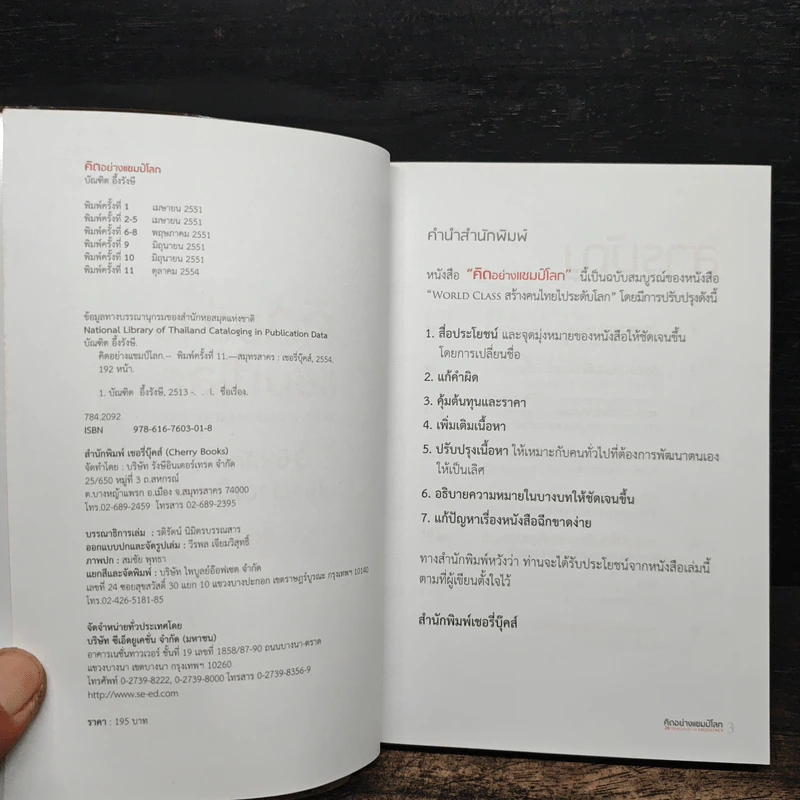 คิดอย่างแชมป์โลก
บัณฑิต อึ้งรังษี
พิมพ์ครั้งที่ 1 เมษายน 2551
พิมพ์ครั้งที่ 2-5 เมษายน 2551
พิมพ์ครั้งที่ 6-8 พฤษภาคม 2551
พิมพ์ครั้งที่ 9 มิถุนายน 2551
พิมพ์ครั้งที่ 10 มิถุนายน 2551
พิมพ์ครั้งที่ 11 ตุลาคม 2554
ข้อมูลทางบรรณานุกรมของสำนักหอสมุดแห่งชาติ
National Library of Thailand Cataloging in Publication Data
บัณฑิต อึ้งรังษี.
คิดอย่างแชมป์โลก.-- พิมพ์ครั้งที่ 11.—สมุทรสาคร : เชอรี่บุ๊คส์, 2554.
192 หน้า.
1. บัณฑิต อึ้งรังษี, 2513 -. . I. ชื่อเรื่อง.
784.2092
ISBN 978-616-7603-01-8
สำนักพิมพ์ เชอรี่บุ๊คส์ (Cherry Books)
จัดทำโดย : บริษัท รังษีอินเตอร์เทรด จำกัด
25/650 หมู่ที่ 3 ถ.สหกรณ์
ต.บางหญ้าแพรก อ.เมือง จ.สมุทรสาคร 74000
โทร.02-689-2459 โทรสาร 02-689-2395
บรรณาธิการเล่ม : รติรัตน์ นิมิตรบรรณสาร
ออกแบบปกและจัดรูปเล่ม : วีรพล เจียมวิสุทธิ์
ภาพปก : สมชัย พุทธา
แยกสีและจัดพิมพ์ : บริษัท ไพบูลย์อ๊อฟเซต จำกัด
เลขที่ 24 ซอยสุขสวัสดิ์ 30 แยก 10 แขวงบางปะกอก เขตราษฎร์บูรณะ กรุงเทพฯ 10140
โทร.02-426-5181-85
จัดจำหน่ายทั่วประเทศโดย
บริษัท ซีเอ็ดยูเคชั่น จำกัด (มหาชน)
อาคารเนชั่นทาวเวอร์ ชั้นที่ 19 เลขที่ 1858/87-90 ถนนบางนา-ตราด
แขวงบางนา เขตบางนา กรุงเทพฯ 10260
โทรศัพท์ 0-2739-8222, 0-2739-8000 โทรสาร 0-2739-8356-9
http://www.se-ed.com
ราคา : 195 บาท
คำนำสำนักพิมพ์
หนังสือ “คิดอย่างแชมป์โลก” นี้เป็นฉบับสมบูรณ์ของหนังสือ
“WORLD CLASS สร้างคนไทยไประดับโลก” โดยมีการปรับปรุงดังนี้
1. สื่อประโยชน์ และจุดมุ่งหมายของหนังสือให้ชัดเจนขึ้น
โดยการเปลี่ยนชื่อ
2. แก้คำผิด
3. คุ้มต้นทุนและราคา
4. เพิ่มเติมเนื้อหา
5. ปรับปรุงเนื้อหา ให้เหมาะกับคนทั่วไปที่ต้องการพัฒนาตนเอง
ให้เป็นเลิศ
6. อธิบายความหมายในบางบทให้ชัดเจนขึ้น
7. แก้ปัญหาเรื่องหนังสือฉีกขาดง่าย
ทางสำนักพิมพ์หวังว่า ท่านจะได้รับประโยชน์จากหนังสือเล่มนี้
ตามที่ผู้เขียนตั้งใจไว้
สำนักพิมพ์เชอรี่บุ๊คส์
คิดอย่างแชมป์โลก
3